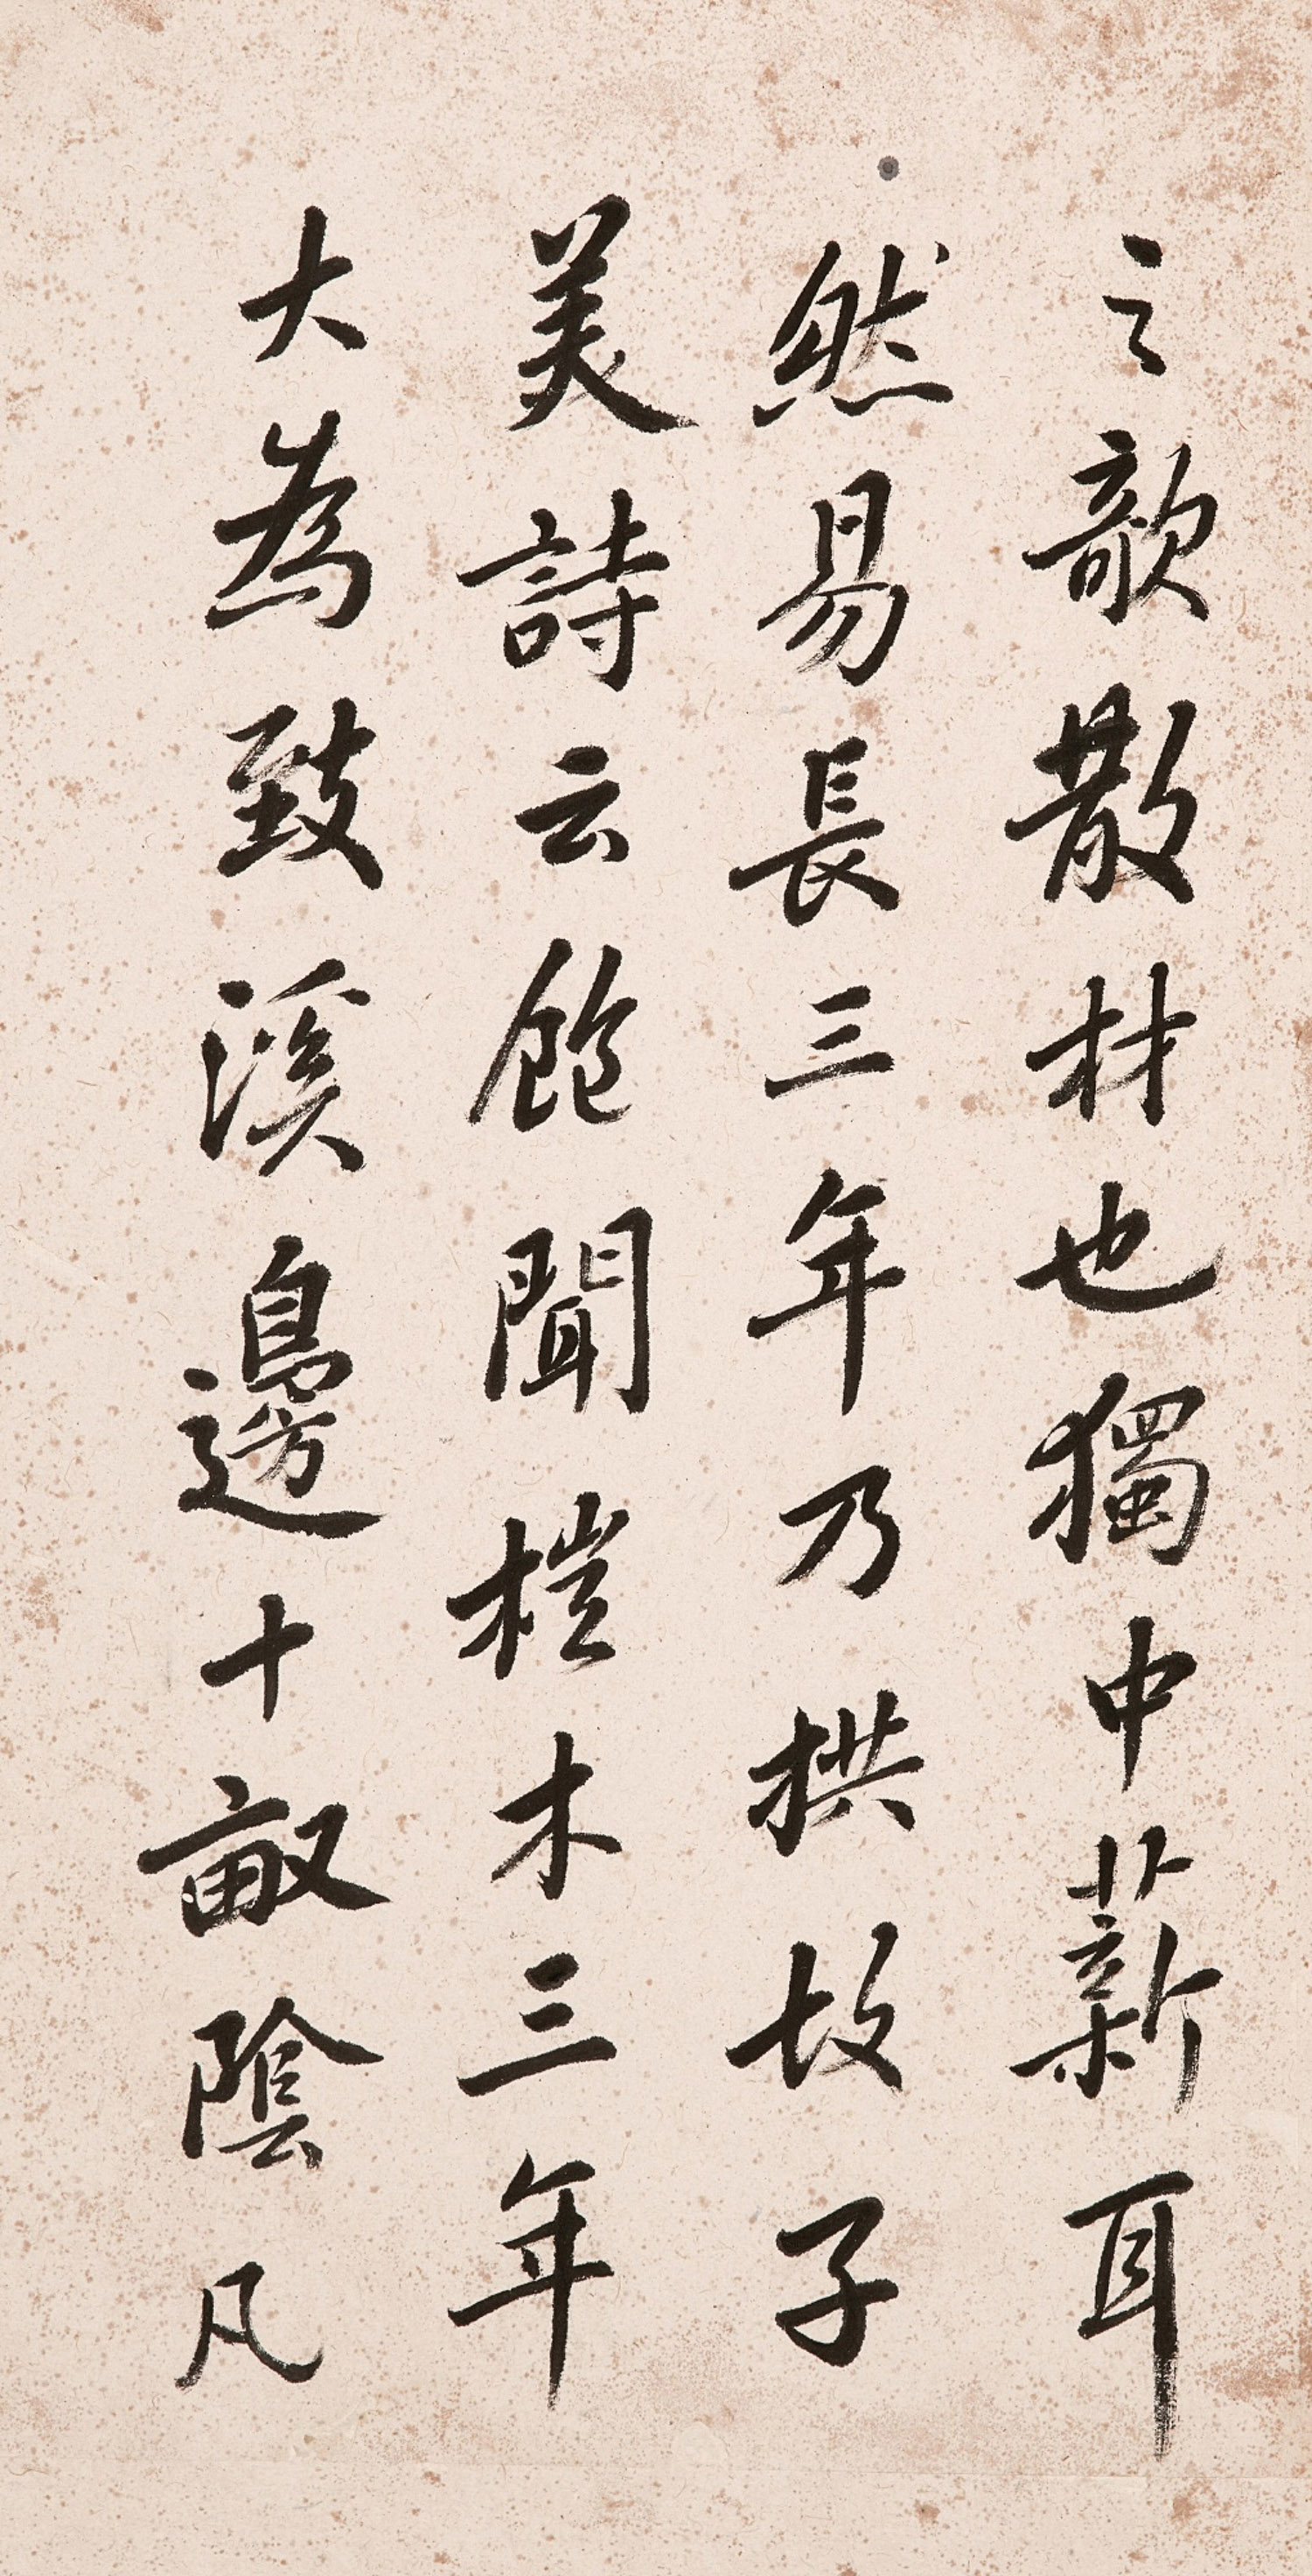 之欹散材也獨中薪耳
然易長三年乃拱故子
美詩云飽聞榿木三年
大為致溪邊十畝陰凡